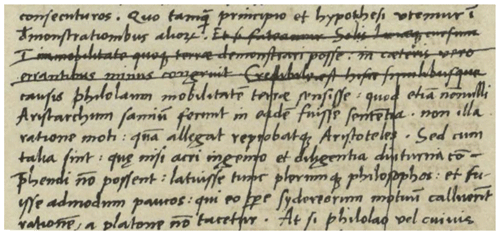 consecuturos. Quo tamq̃ principio et hypothesi utemur ĩ
demonstrationibus alior. Et si fateamur Solis lunæq cursum
ĩ immobilitate quoq terræ demonstrari posse: in cæteris vero
errantibus minus congruit Credibile est hisce similibusque
causis philolaum mobilitatẽ terræ sensisse: quod etiã nonnulli
Aristarchum samium ferunt in eadẽ fuisse sententia. non illa
ratione moti: quã allegat reprobatq Aristoteles. Sed cum
talia sint: quę nisi acri ingenio et diligentia diuturna cõ-
p̃hendi nõ possent: latuisse tunc plerumq philosophos: et fu-
isse admodum paucos: qui eo tpe sydereorum motuum calluerint
rationẽ, a platone nõ tacetur. At si philolao vel cuivis